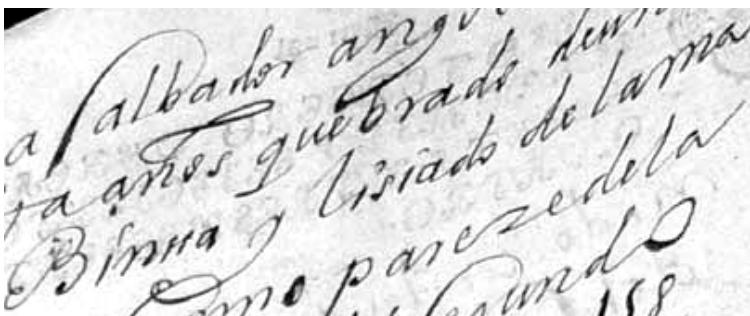 a Salbador angu
ta años quebrado deun
y lisiado dela ma
como pareze dela
158